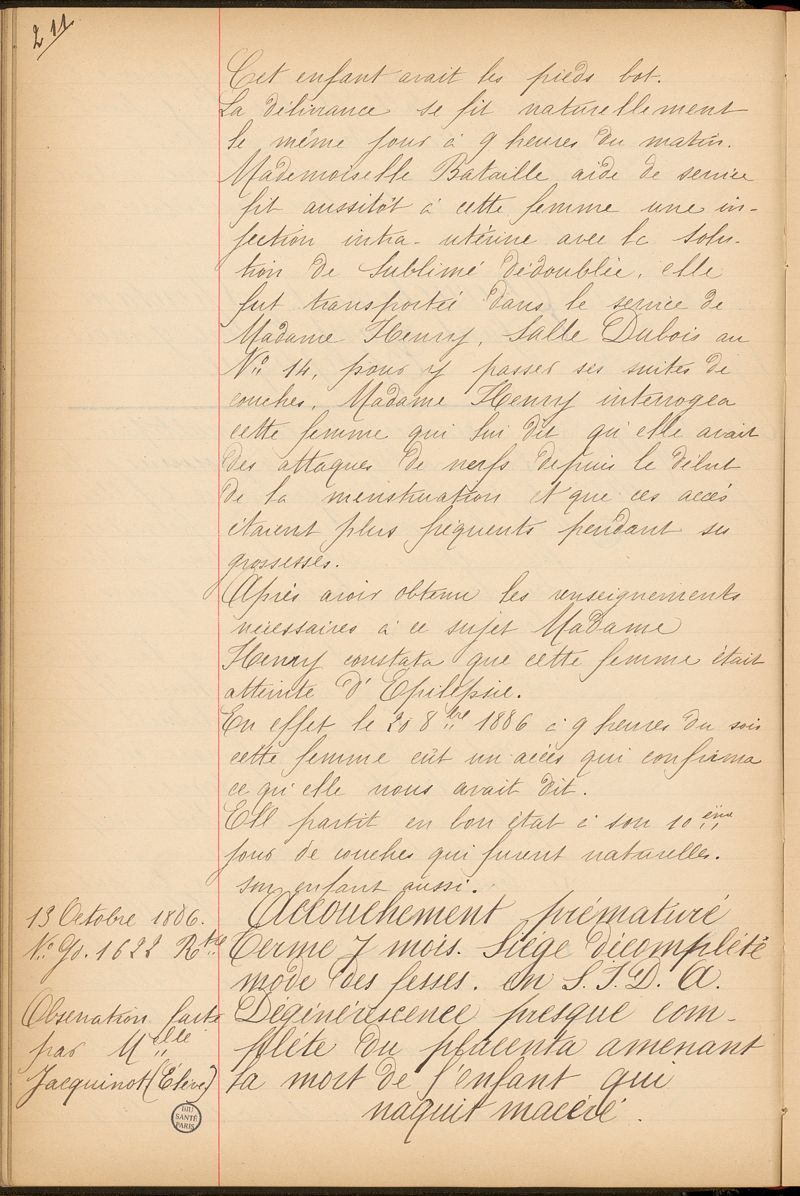 211
Cet enfant avait les pieds bot.
La délivrance se fit naturellement
le même jour à 9 heures du matin.
Mademoiselle Bataille aide de service
fit aussitôt à cette femme une in-
jection intra-utérine avec la solu-
tion de Sublimé dédoublée, elle
fut transportée dans le service de
Madame Henry, Salle Dubois au
No 14, pour y passer ses suites de
couches. Madame Henry interrogea
cette femme qui lui dit qu'elle avait
des attaques de nerfs depuis le début
de la menstruation et que ces accès
étaient plus fréquents pendant ses
grossesses.
Après avoir obtenu les renseignements
nécessaires à ce sujet Madame
Henry constata que cette femme était
atteinte d'Epilepsie.
En effet le 20 8bre 1886 à 9 heures du soir
cette femme eût un accès qui confirma
ce qu'elle nous avait dit.
Ell partit en bon état à son 10ème
jour de couches qui furent naturelles.
son enfant aussi.
13 Octobre 1886.
No Gd. 1622 Rtre
Observation faite
par Mlle
Jacquinot (Elève)
Accouchement prématuré
terme 7 mois. Siège décomplété
mode des fesses. en S.I.D.A.
Dégénérescence presque com-
plète du placenta amenant
la mort de l'enfant qui
naquit macéré.
BIU
SANTÉ
PARIS